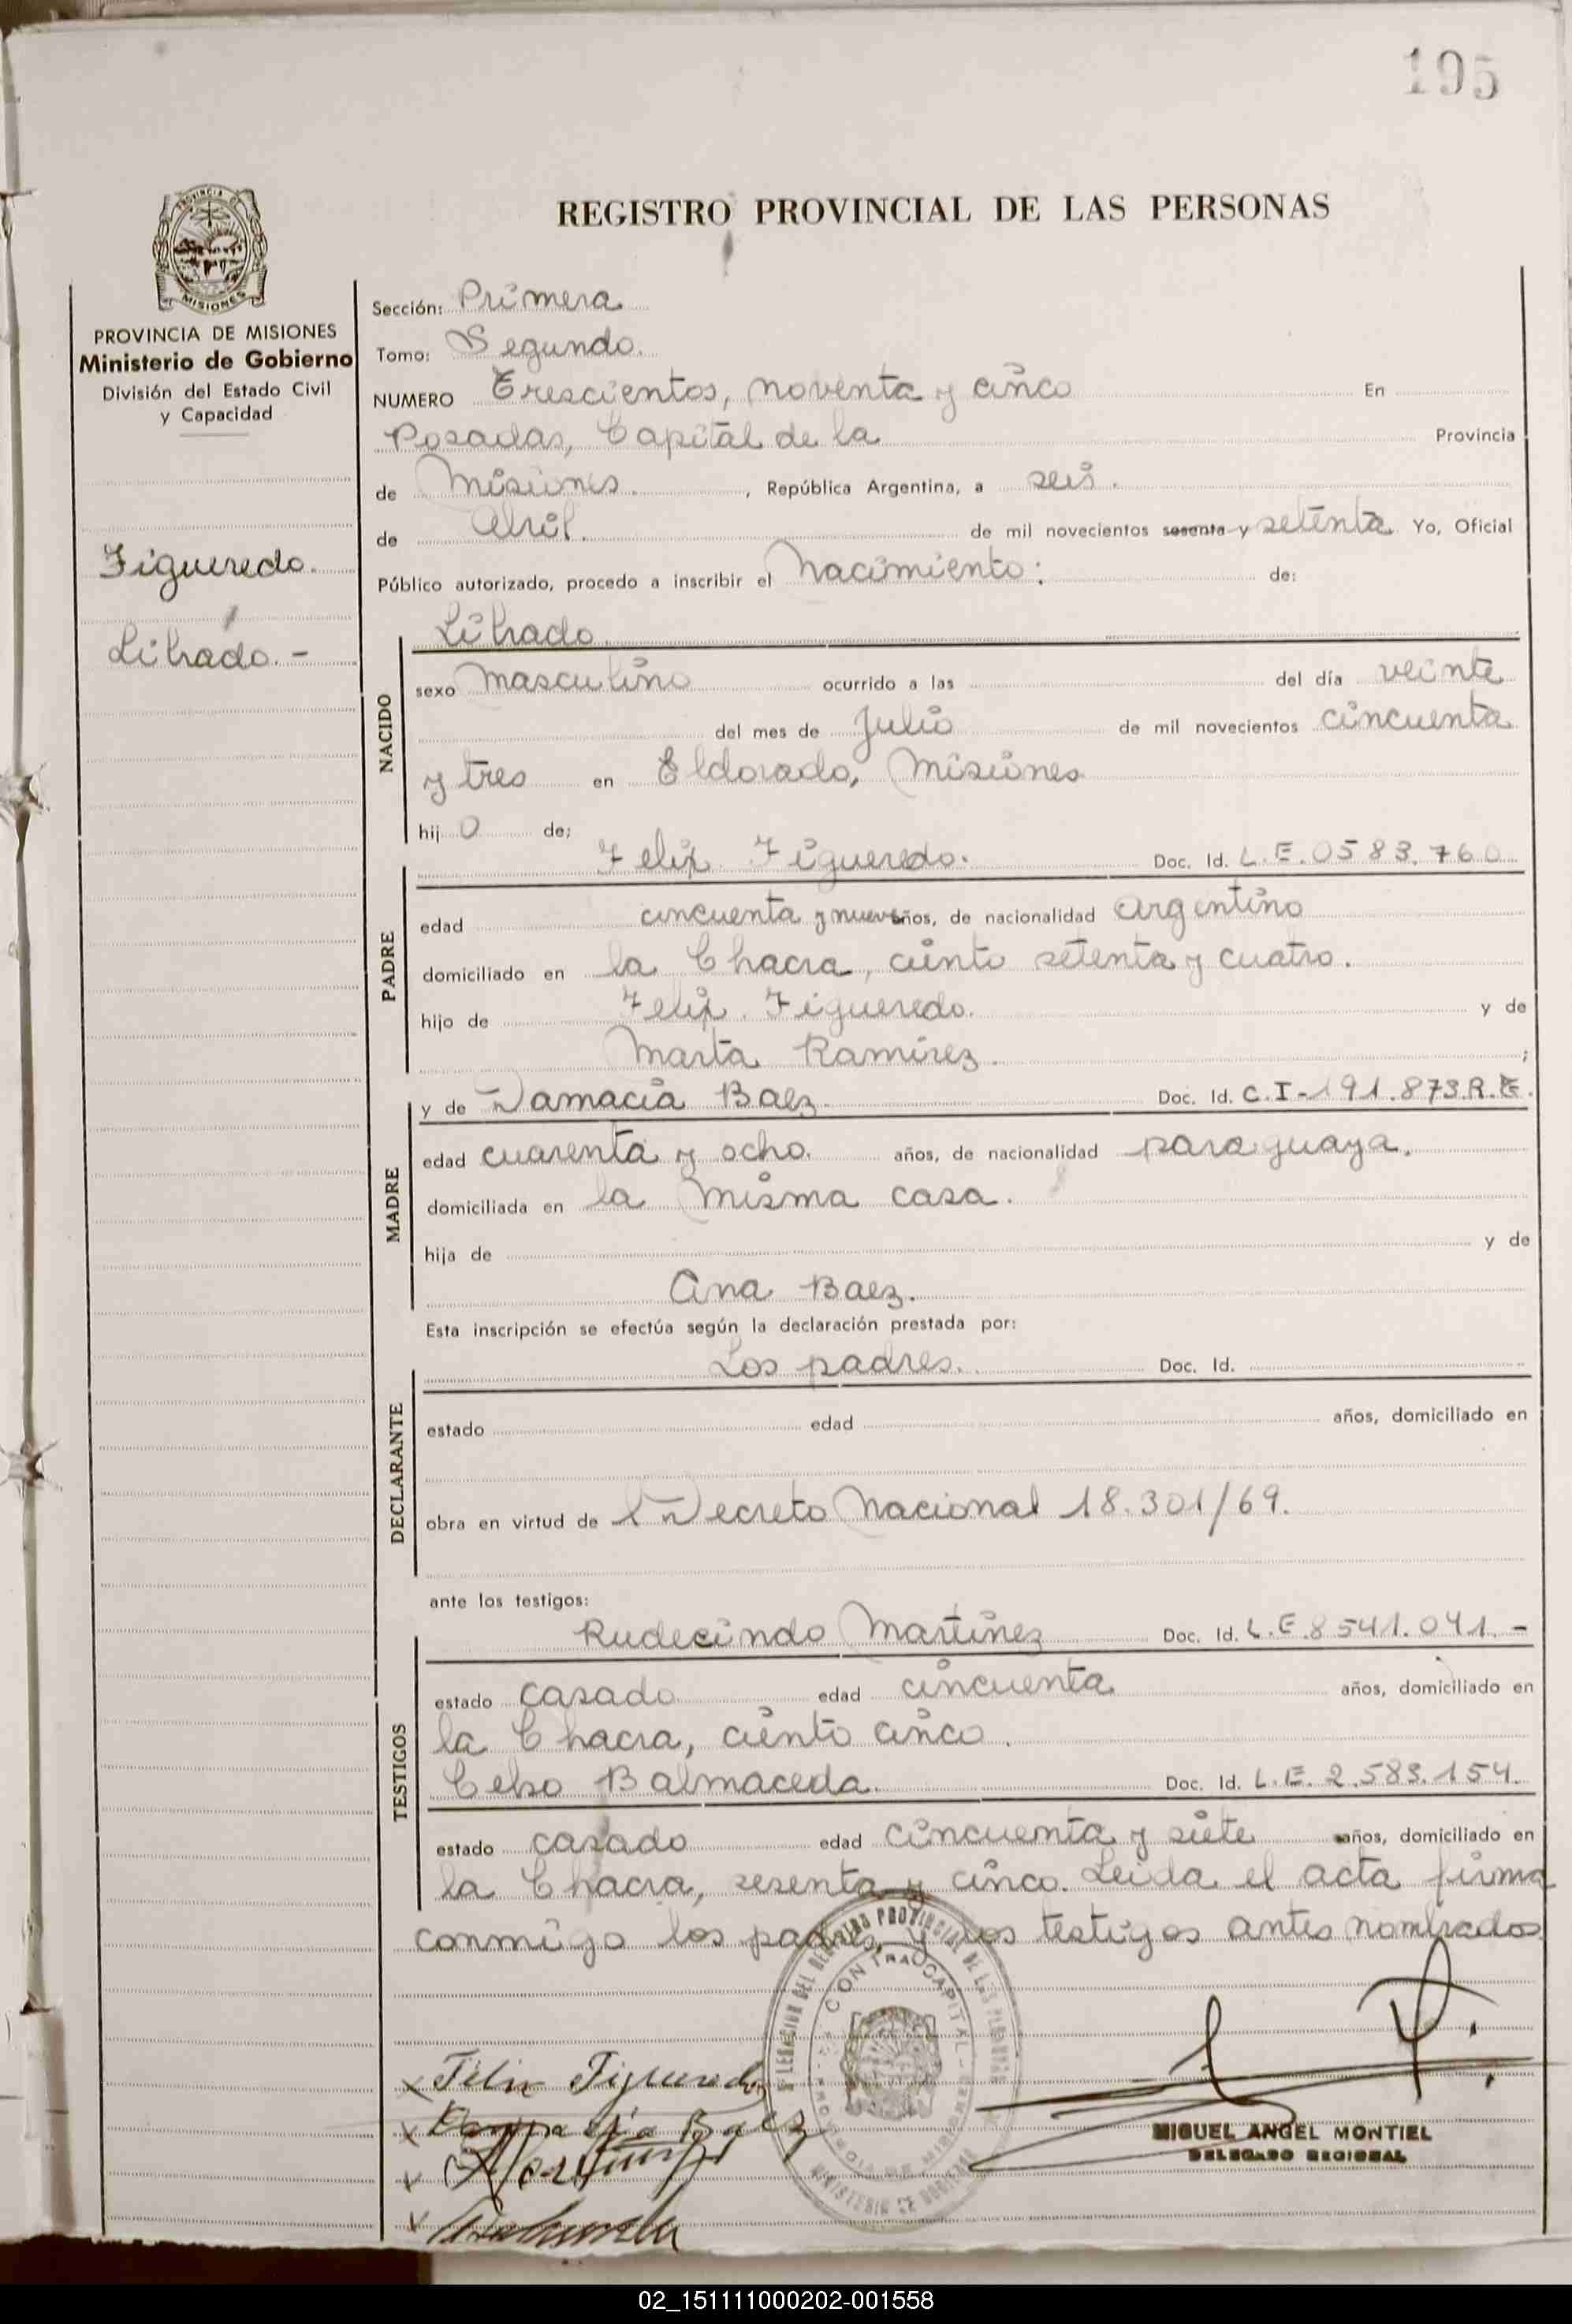 195
PROVINCIA DE MISIONES
MISIONES
PROVINCIA DE MISIONES
Ministerio de Gobierno
División del Estado Civil
y Capacidad
Figueredo.
Librado.-
REGISTRO PROVINCIAL DE LAS PERSONAS
Sección: Primera
Tomo: Segundo.
NUMERO Trescientos, noventa y cinco En
Posadas, Capital de la Provincia
de Misiones. , República Argentina, a seis.
de Abril. de mil novecientos sesenta y setenta Yo, Oficial
Público autorizado, procedo a inscribir el Nacimiento: de:
Librado
NACIDO
sexo Masculino ocurrido a las del día veinte
del mes de Julio de mil novecientos cincuenta
y tres en Eldorado, Misiones
hij o de;
Felix Figueredo. Doc. Id. L.E.0583.760
PADRE
edad cincuenta y nueve años, de nacionalidad argentino
domiciliado en la Chacra, ciento setenta y cuatro.
hijo de Felix. Figueredo. y de
Marta Ramirez. ;
y de Damacia Baez Doc. Id. C.I-191.873.R.E.
MADRE
edad cuarenta y ocho. años, de nacionalidad paraguaya.
domiciliada en la misma casa.
hija de y de
Ana Baez.
Esta inscripción se efectúa según la declaración prestada por:
Los padres. Doc. Id.
DECLARANTE
estado edad años, domiciliado en
obra en virtud de l Decreto Nacional 18.301/69.
ante los testigos:
Rudecindo Martinez Doc. Id. L.E.8541.041.-
TESTIGOS
estado casado edad cincuenta años, domiciliado en
la Chacra, ciento cinco.
Celso Balmaceda. Doc. Id. L.E. 2.583.154.
estado casado edad cincuenta y siete años, domiciliado en
la Chacra, sesenta y cinco. Leida el acta firma
conmigo los padres, y los testigos antes nombrados
DELEGACION DEL REGISTRO PROVINCIAL DE LAS PERSONAS
CONTRACAPITAL
PROVINCIA DE MISIONES
MINISTERIO DE GOBIERNO
x Felix Figueredo
x Damasia Baez
MIGUEL ANGEL MONTIEL
DELEGADO REGIONAL
02_151111000202-001558